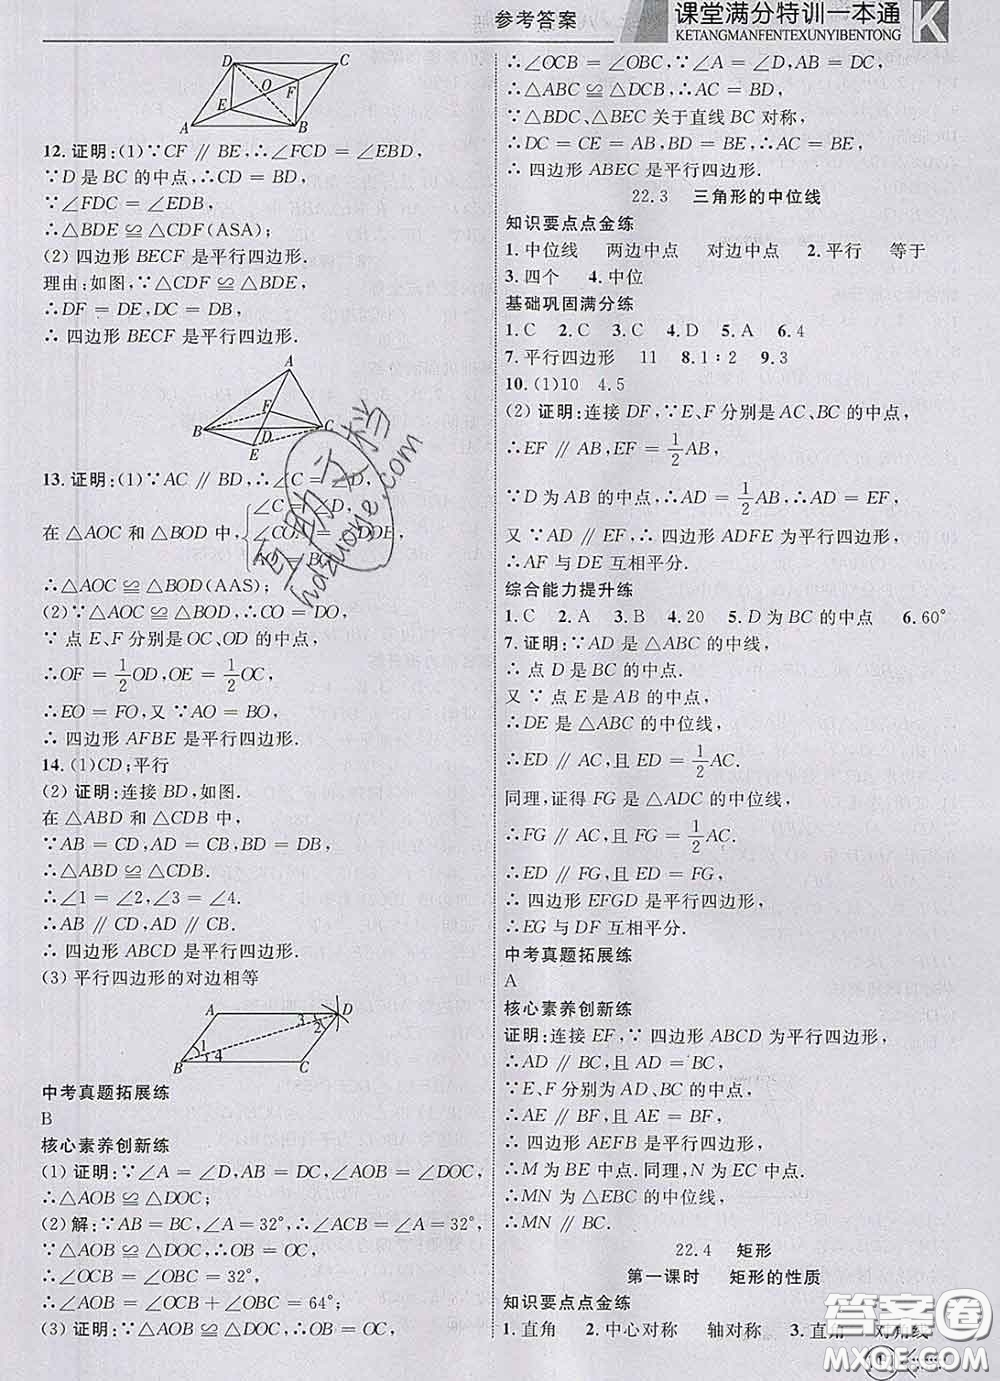 参考答案
课堂满分特训一本通
KETANGMANFENTEXUNYIBENTONG
K
D C O E F A B
12.证明:(1)∵CF∥BE,∴∠FCD=∠EBD,
∵D 是 BC 的中点,∴CD=BD,
∵∠FDC=∠EDB,
∴△BDE≌△CDF(ASA);
(2) 四边形 BECF 是平行四边形.
理由:如图,∵△CDF≌△BDE,
∴DF=DE,DC=DB,
∴ 四边形 BECF 是平行四边形.
A F B D C E
13.证明:(1)∵AC∥BD,∴∠C=∠D,
∠C=∠D,
在 △AOC 和 △BOD 中,
∴△AOC≌△BOD(AAS);
(2)∵△AOC≌△BOD,∴CO=DO,
∵ 点 E、F 分别是 OC、OD 的中点,
∴OF=1/2OD,OE=1/2OC,
∴EO=FO,又 ∵AO=BO,
∴ 四边形 AFBE 是平行四边形.
14.(1)CD;平行
(2) 证明:连接 BD,如图.
在 △ABD 和 △CDB 中,
∵AB=CD,AD=CB,BD=DB,
∴△ABD≌△CDB.
∴∠1=∠2,∠3=∠4.
∴AB∥CD,AD∥CB.
∴ 四边形 ABCD 是平行四边形.
(3) 平行四边形的对边相等
A 3 D 2 1 4 B C
中考真题拓展练
B
核心素养创新练
(1) 证明:∵∠A=∠D,AB=DC,∠AOB=∠DOC,
∴△AOB≌△DOC;
(2) 解:∵AB=BC,∠A=32°,∴∠ACB=∠A=32°,
∵△AOB≌△DOC,∴OB=OC,
∴∠OCB=∠OBC=32°,
∴∠AOB=∠OCB+∠OBC=64°;
(3) 证明:∵△AOB≌△DOC,∴OB=OC,
∴∠OCB=∠OBC,∵∠A=∠D,AB=DC,
∴△ABC≌△DCB,∴AC=DB,
∵△BDC、△BEC 关于直线 BC 对称,
∴DC=CE=AB,BD=BE=AC,
∴ 四边形 ABEC 是平行四边形.
22.3 三角形的中位线
知识要点点金练
1.中位线 两边中点 对边中点 2.平行 等于
3.四个 4.中位
基础巩固满分练
1.C 2.C 3.C 4.D 5.A 6.4
7.平行四边形 11 8.1∶2 9.3
10.(1)10 4.5
(2) 证明:连接 DF,∵E、F 分别是 AC、BC 的中点,
∴EF∥AB,EF=1/2AB,
∵D 为 AB 的中点,∴AD=1/2AB,∴AD=EF,
又 ∵AD∥EF,∴ 四边形 ADFE 为平行四边形,
∴AF 与 DE 互相平分.
综合能力提升练
1.C 2.A 3.B 4.20 5.D 为 BC 的中点 6.60°
7.证明:∵AD 是 △ABC 的中线,
∴ 点 D 是 BC 的中点.
又 ∵ 点 E 是 AB 的中点,
∴DE 是 △ABC 的中位线,
∴ED∥AC,且 ED=1/2AC.
同理,证得 FG 是 △ADC 的中位线,
∴FG∥AC,且 FG=1/2AC.
∴ED∥FG,且 ED=FG,
∴ 四边形 EFGD 是平行四边形.
∴EG 与 DF 互相平分.
中考真题拓展练
A
核心素养创新练
证明:连接 EF,∵ 四边形 ABCD 为平行四边形,
∴AD∥BC,且 AD=BC,
∵E、F 分别为 AD、BC 的中点,
∴AE∥BF,且 AE=BF,
∴ 四边形 AEFB 是平行四边形,
∴M 为 BE 中点.同理,N 为 EC 中点,
∴MN 为 △EBC 的中位线,
∴MN∥BC.
22.4 矩形
第一课时 矩形的性质
知识要点点金练
1.直角 2.中心对称 轴对称 3.直角 对角线
互助文档
hdzuoje.com
答案圈